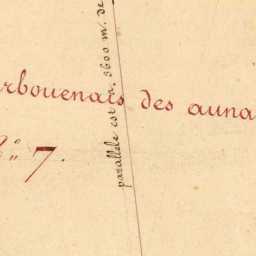 arbouenais des auna
No 7.
parallèle est m. 3600 m. de